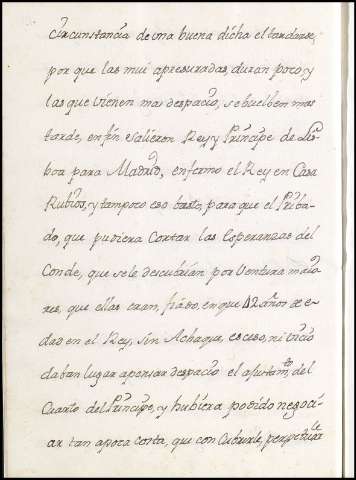 Circunstancia de vna buena dicha el tardarse,
por que las mui apresuradas, duran poco, y
las que vienen mas despacio, se buelben mas
tarde, en fin salieron Rey y Principe de Lis-
boa para Madrid, enfermo el Rey en Casa
Rubios, y tampoco eso basto, para que el Priba-
do, que pudiera Cortar las Esperanzas del
Conde, que se le descubrian por Ventura maio-
res, que ellas eran, fiabo, en que 42 años de e-
dad en el Rey, sin Achaque, esceso, ni vicio
daban lugar apensar despacio el ajustamto. del
Cuarto del Principe, y hubiera podido negoci-
ar tan apoca costa, que con Cubrirle, perpetuarle